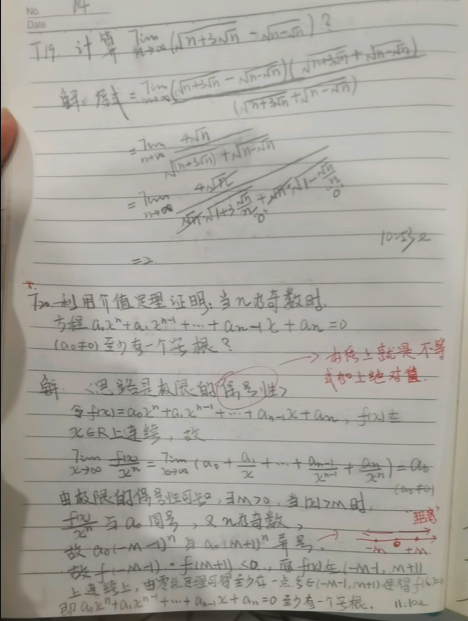 No. 14
Date
T19. 计算 lim n→∞ (√(n+3√n) - √(n-√n))?
解: 原式 = lim n→∞ (√(n+3√n) - √(n-√n))(√(n+3√n) + √(n-√n)) / (√(n+3√n) + √(n-√n))
= lim n→∞ 4√n / (√(n+3√n) + √(n-√n))
= lim n→∞ 4√n / (√n·√(1+3√n/n) + √n·√(1-√n/n))
0 0
=2
T20. 利用介值定理证明: 当n为奇数时,
方程 a₀xⁿ+a₁xⁿ⁻¹+…+aₙ₋₁x+aₙ=0
(a₀≠0) 至少有一个实根?
→ 本质上就是不等
式加上绝对值.
解: <思路是极限的保号性>
令f(x)=a₀xⁿ+a₁xⁿ⁻¹+…+aₙ₋₁x+aₙ, f(x)在
x∈R上连续, 故
lim x→∞ f(x)/xⁿ = lim x→∞ (a₀+a₁/x+…+aₙ₋₁/xⁿ⁻¹+aₙ/xⁿ)=a₀
(a₀≠0)
由极限的保号性可知, ∃M>0, 当|x|>M时,
f(x)/xⁿ 与a₀同号, 又n为奇数,
"距离"
故 a₀(-M-1)ⁿ与a₀(M+1)ⁿ异号.
-M 0 +M
故 f(-M-1)·f(M+1)<0, 而f(x)在[-M-1, M+1]
上连续, 由零点定理可得至少存在一点ξ∈(-M-1,M+1)使得f(ξ)=0
即a₀xⁿ+a₁xⁿ⁻¹+…+aₙ₋₁x+aₙ=0至少有一个实根.